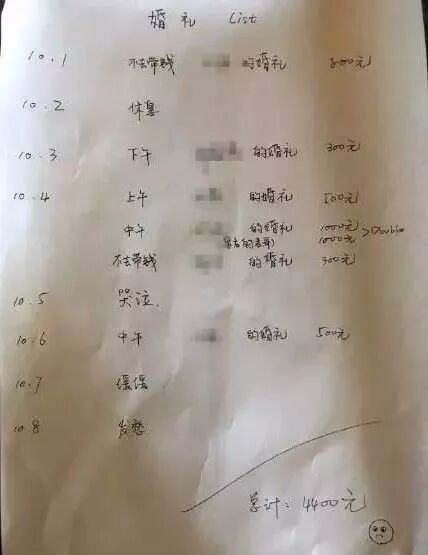 婚礼 List
10.1 不去带钱 的婚礼 800元
10.2 休息
10.3 下午 的婚礼 300元
10.4 上午 的婚礼 500元
中午 的婚礼 1000元
男友的表哥) 1000元 >Double
不去带钱 的婚礼 300元
10.5 哭泣.
10.6 中午 的婚礼 500元
10.7 缓缓
10.8 发
总计: 4400元